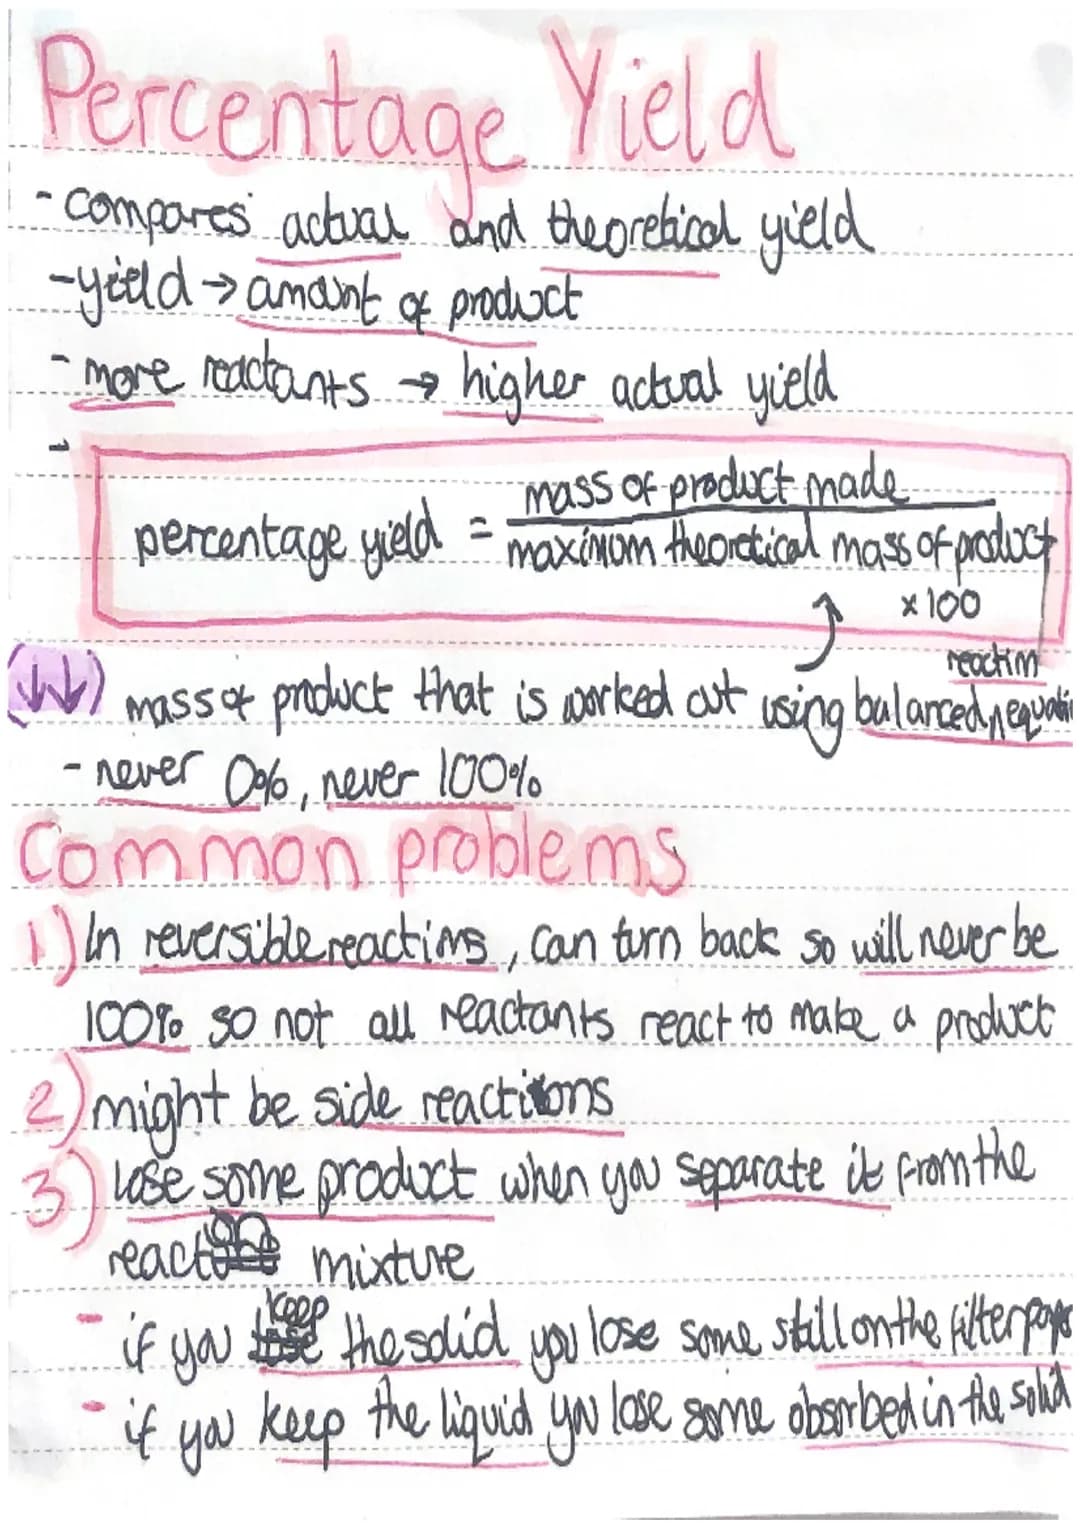 Percentage Yield
- compares actual and theoretical yield
- yield → amount of product
- more reactants → higher actual yield
-
percentage yield = mass of product made
maximum theoretical mass of product
x 100
reaction
(↓↓) mass of product that is worked out using balanced ^ equati
- never 0%, never 100%
Common problems
1) In reversible reactions, can turn back so will never be
100% so not all reactants react to make a product
2) might be side reactions
3) lose some product when you separate it from the
mixture
keep
- if you the solid you lose some still on the filter paper
- if you keep the liquid you lose some absorbed in the solid